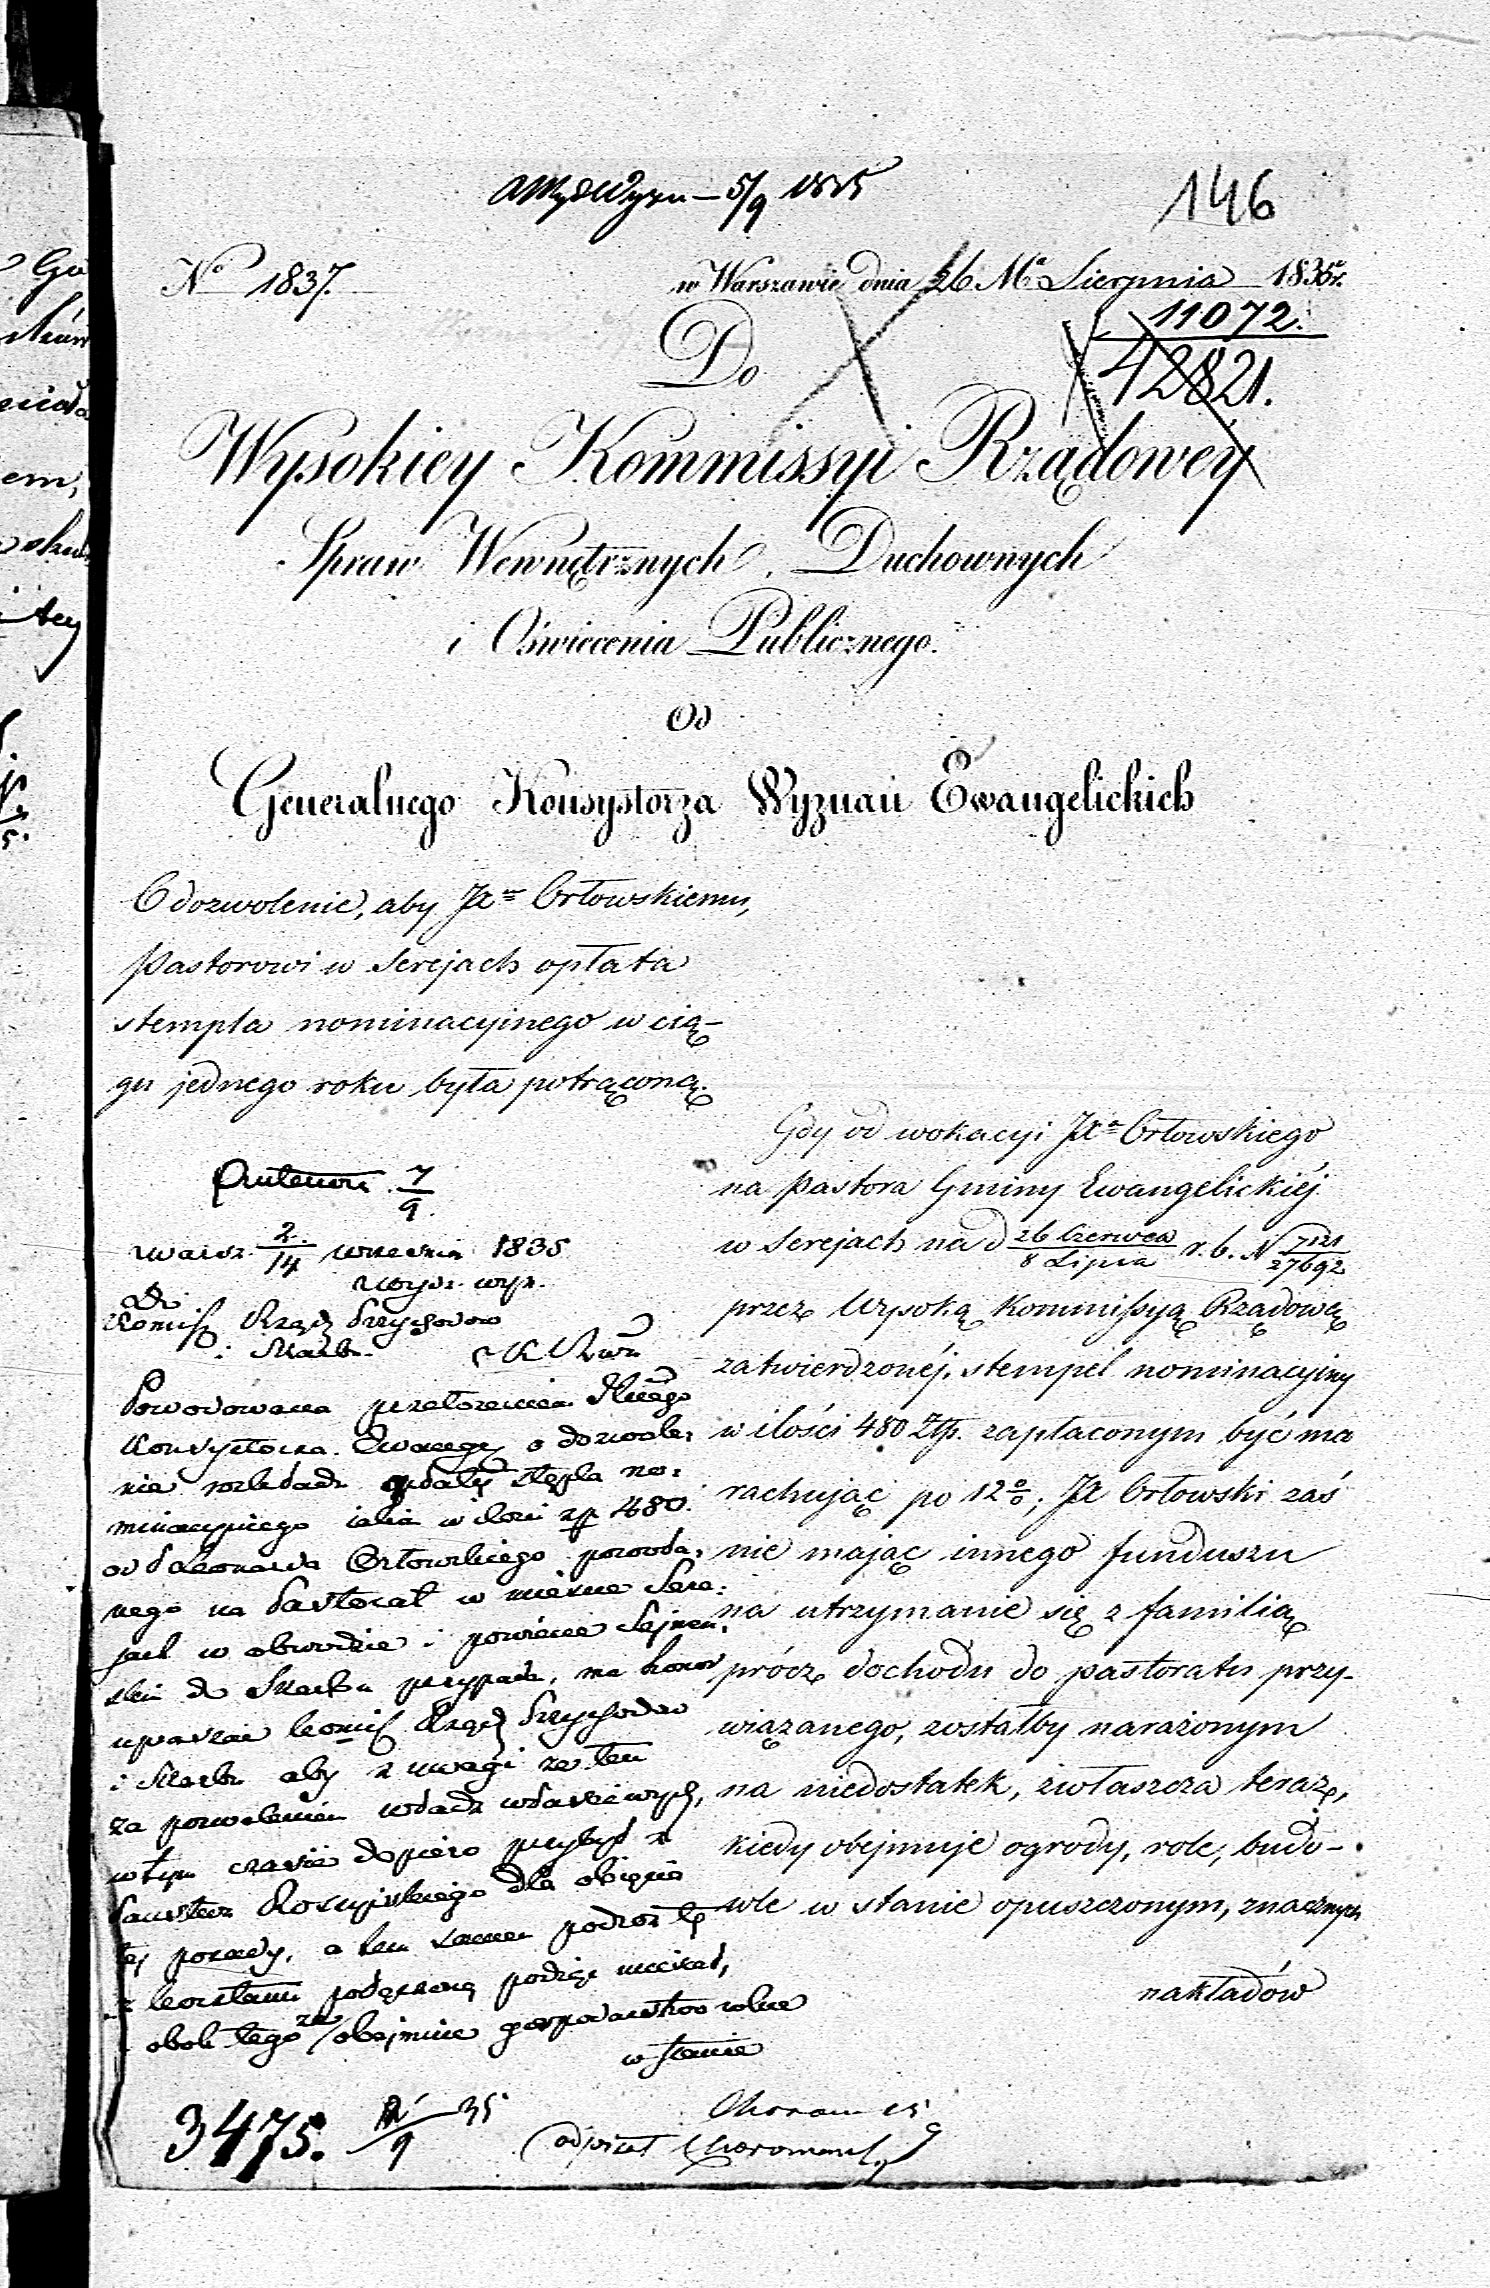 5/9 1835
146
No 1837.
w Warszawie dnia 26 Mca Sierpnia 1835 r.
11072.
42821.
Do
Wysokiey Kommissyi Rządowéy
Spraw Wewnętrznych, Duchownych
i Oświecenia Publicznego.
Od
Generalnego Konsystorza Wyznań Ewangelickich
O dozwolenie, aby JX Orłowskiemu,
Pastorowi w Serejach opłata
stempla nominacyjnego w cią-
gu jednego roku była potrącóną.
Gdy od wokacyi JXa Orłowskiego
na pastora Gminy Ewangelickiéj
w Serejach na d 26 Czerwca / 8 Lipca r. b. N 7121 / 27692
przez Wysoką Kommissyą Rządową
zatwierdzonéj, stempel nominacyjny
w ilości 480 Złp. zapłaconym być ma
rachując po 12 %; JX Orłowski zaś
nie mając innego funduszu
na utrzymanie się z familią
prócz dochodu do pastoratu przy-
wiązanego, zostałby narażonym
na niedostatek, zwłaszcza teraz,
kiedy obejmuje ogrody, role, budo-
wle w stanie opuszczonym, znacznych
nakładów
7/9.
2/14 września 1835
Do
Komiss Rządz Przychodów
i Skarbu
Powodowana przełożeniem
Konsystorza Ewangel o dozwole-
nie rozkładu opłaty stępla no-
minacyjnego w ilości zp 480.
od Orłowskiego powoła-
nego na Pastorat w mieście Sere-
jach w obwodzie i powiecie Sejneń-
skim do Skarbu przypada, ma honor
upraszać Komiss Rządz Przychodów
i Skarbu aby z uwagi że ten
za pozwoleniem władz właściwych,
w tym czasie dopiero przybył z
Państwa Rossyjskiego dla objęcia
téj posady, a tem samem podróż tę
z kosztami połączoną podjąć musiał,
obok tego zaś obejmuie gospodarstwo rolne
w stanie
3475. /9 35